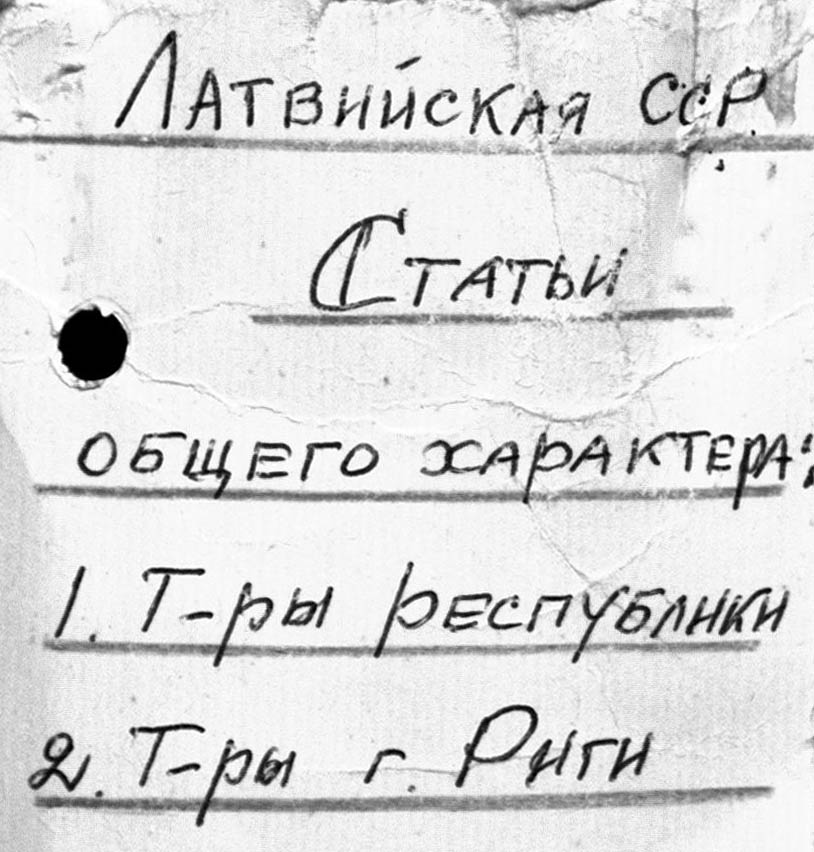 Латвийская ССР.
Статьи
общего характера:
1. Т-ры республики
2. Т-ры г. Риги